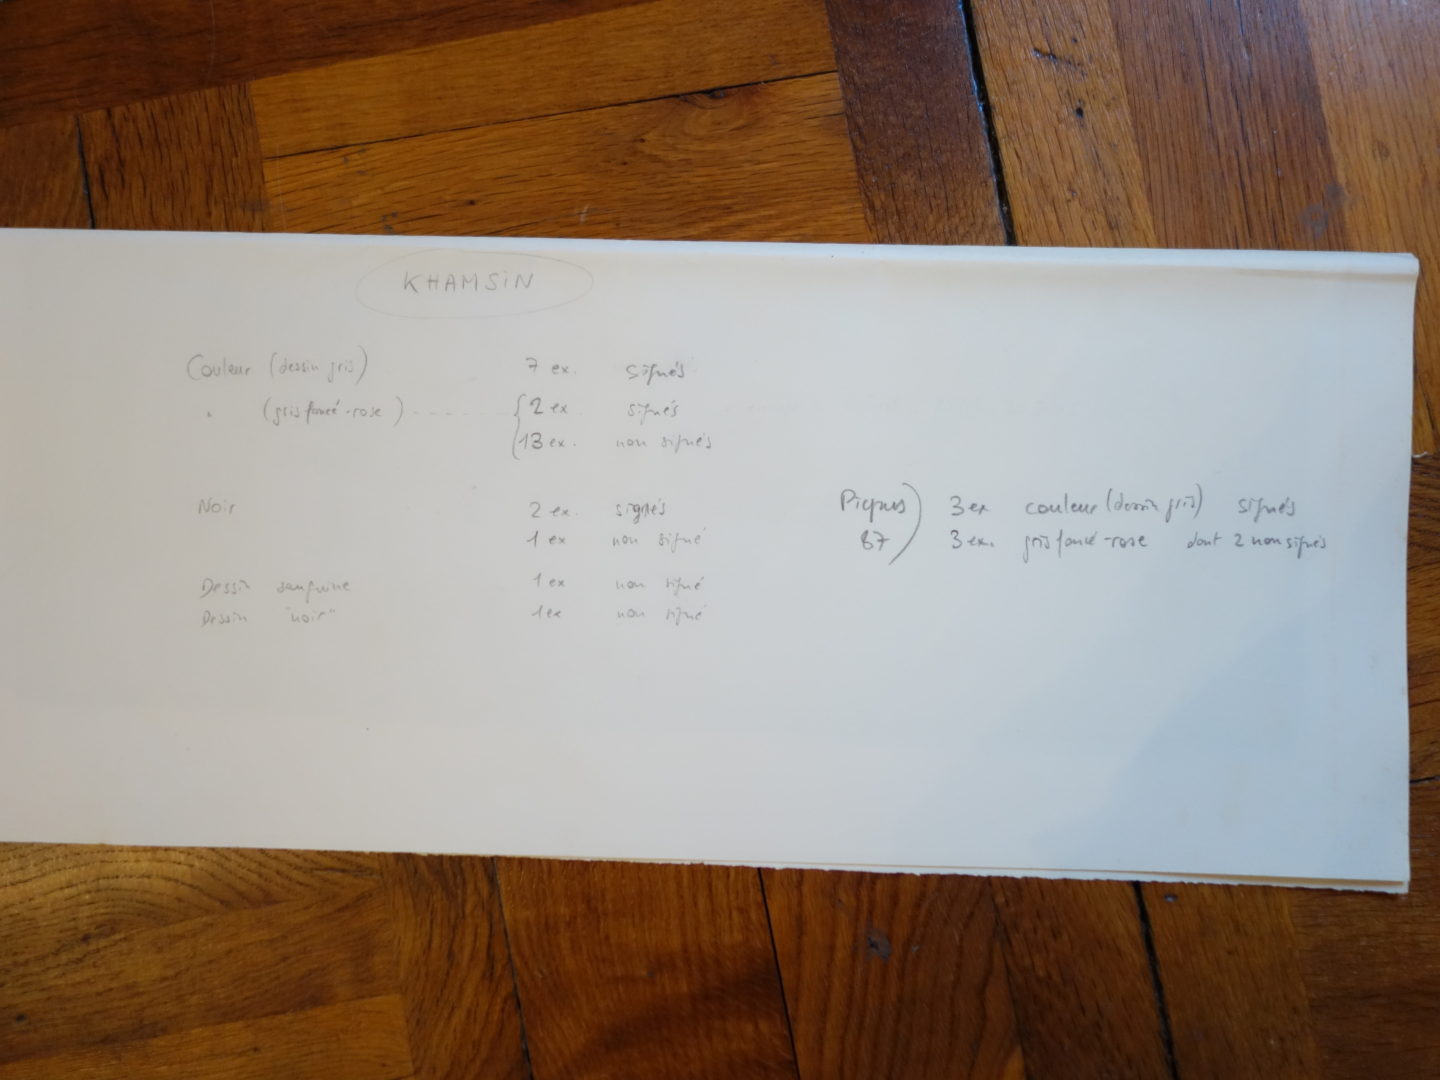 KHAMSiN
Couleur (dessin gris) 7 ex. signés
" (gris foncé-rose) - - - - - - { 2 ex. signés
13 ex. non signés
Noir 2 ex. signés
1 ex non signé
Dessin sanguine 1 ex non signé
Dessin "noir" 1 ex non signé
3 ex couleur (dessin gris) signés
87) 3 ex. gris foncé-rose dont 2 non signés